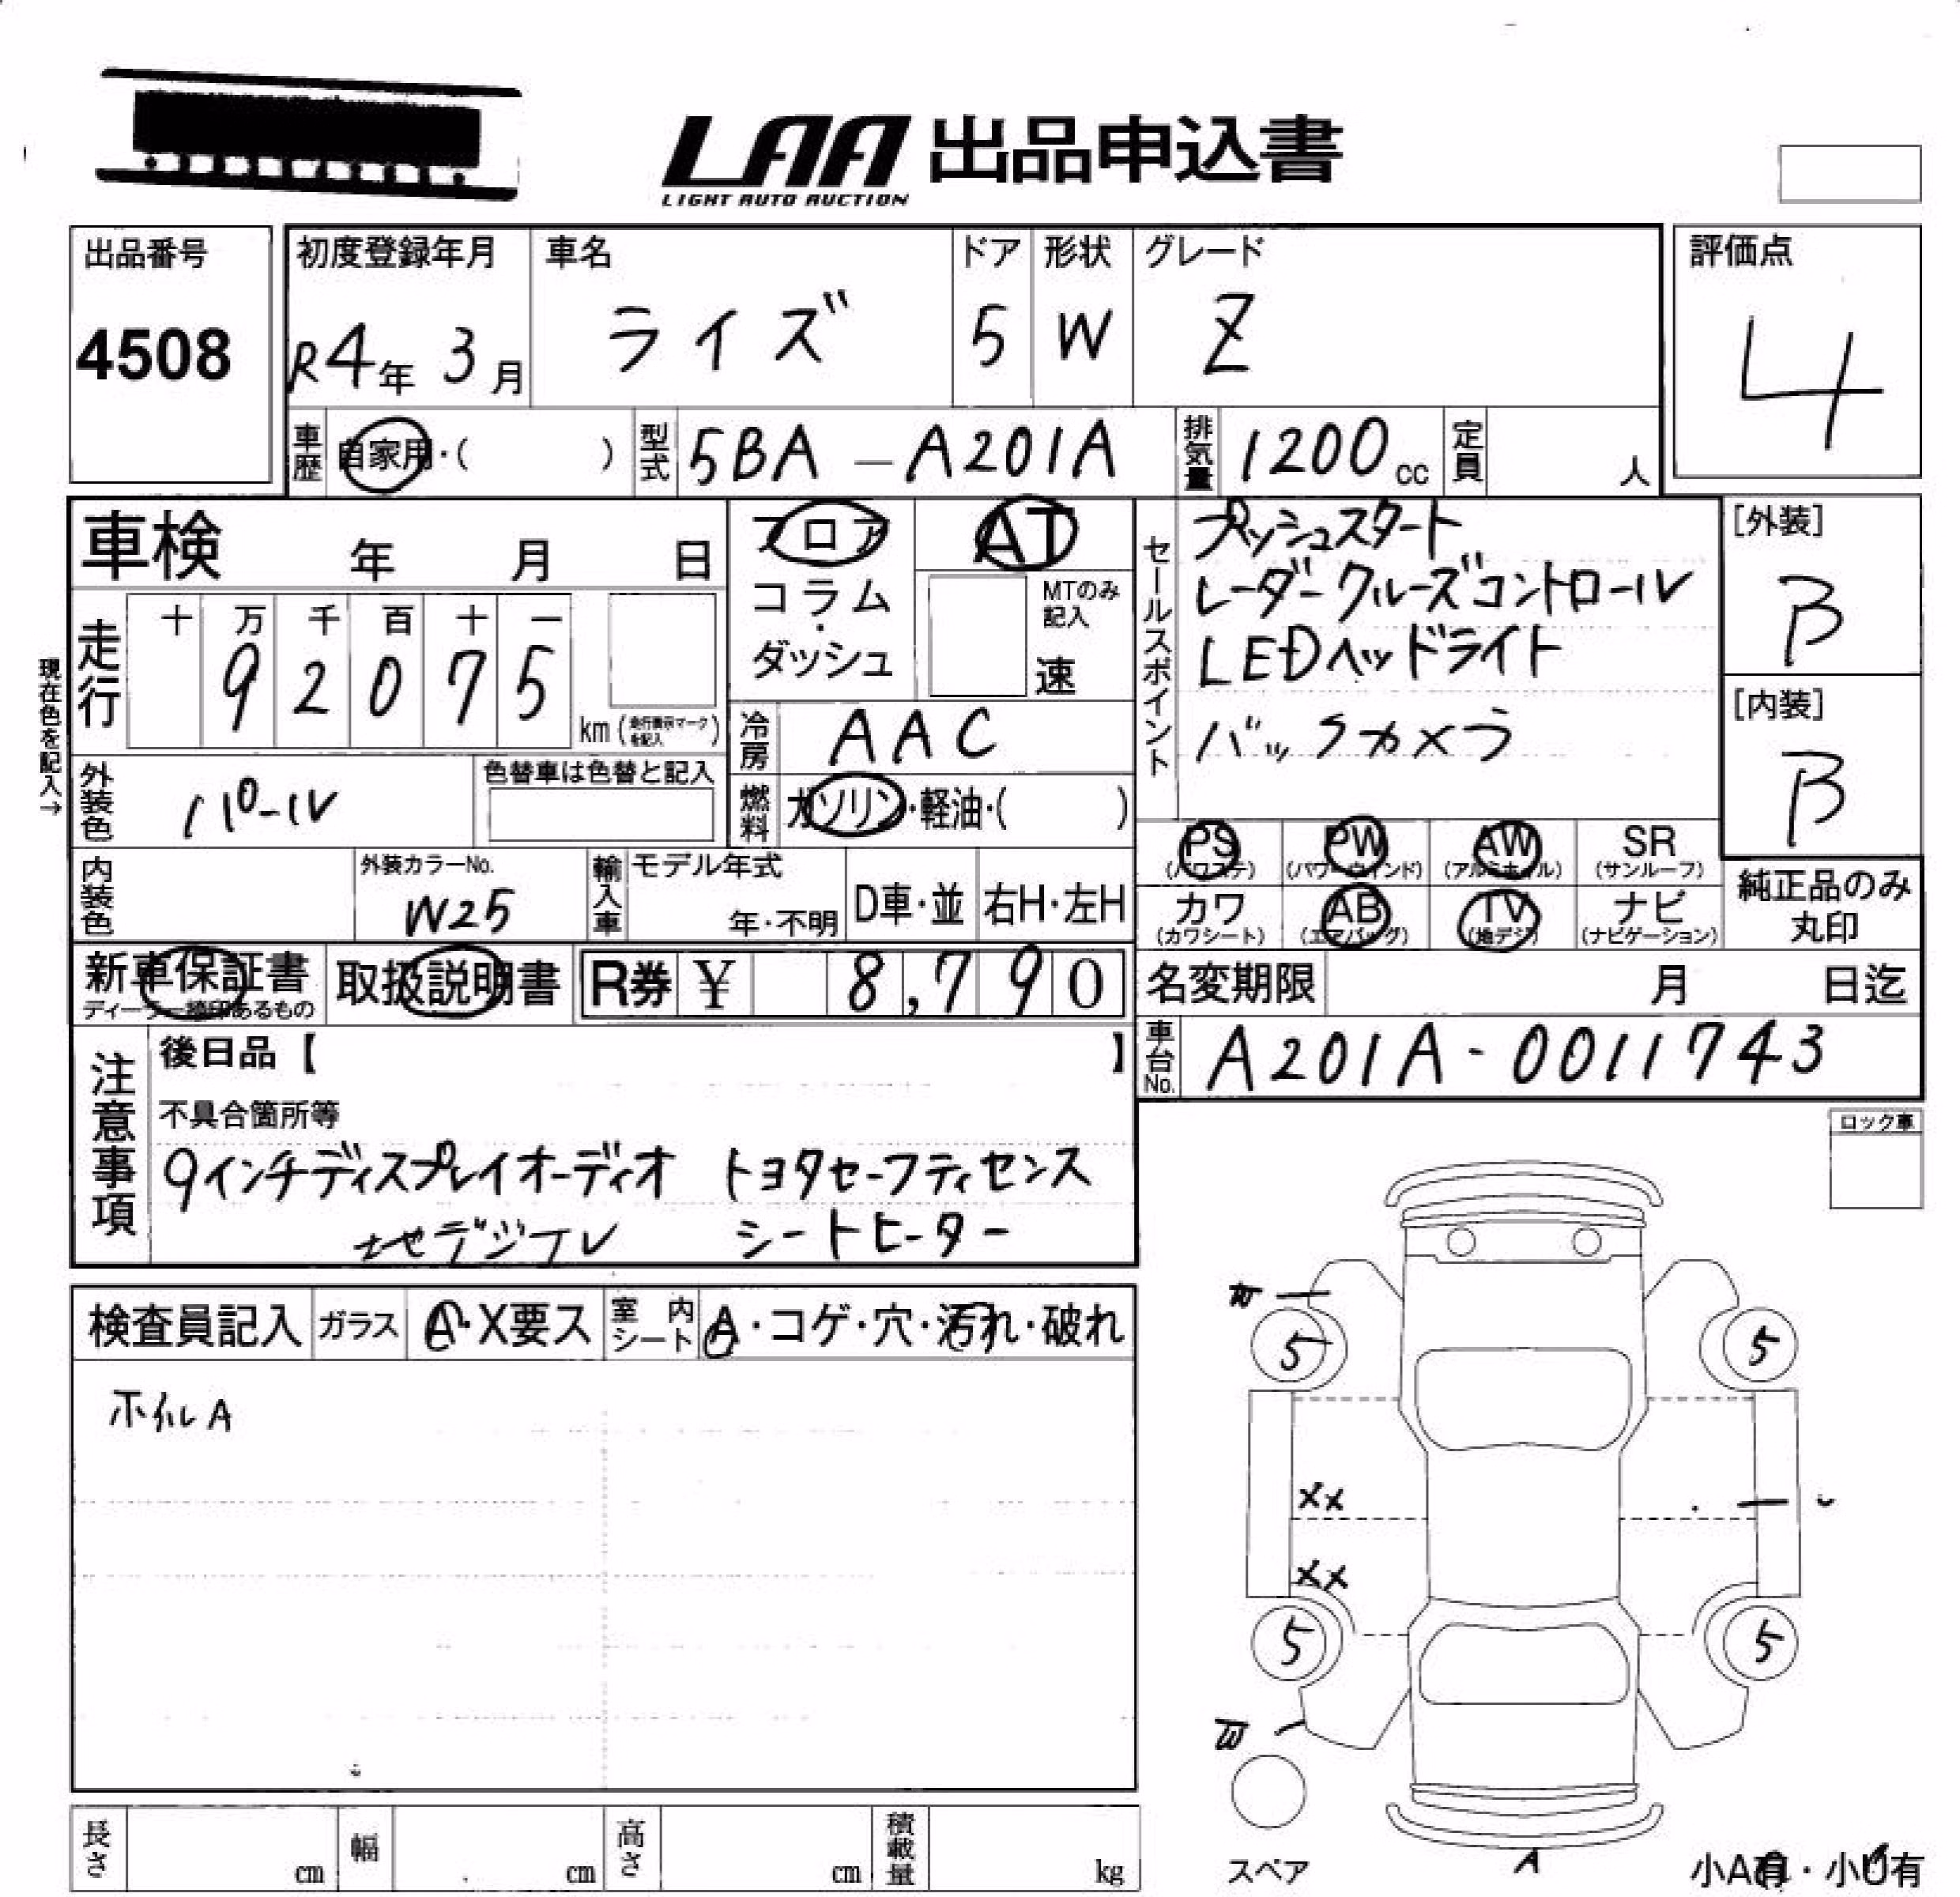 LAA 出品申込書
LIGHT AUTO AUCTION
出品番号
4508
初度登録年月
R4年 3月
車名
ライズ
ドア
5
形状
W
グレード
Z
評価点
4
車歴 自家用・( )
型式 5BA-A201A
排気量 1200cc
定員 人
車検 年 月 日
フロア
コラム・ダッシュ
AT
MTのみ記入
速
走行
十 万 千 百 十 一
9 2 0 7 5
km (走行標示マークを記入)
現在色を記入→
冷房 AAC
燃料 ガソリン・軽油・( )
外装色 パール
色替車は色替と記入
内装色
外装カラーNo.
W25
輸入車 モデル年式
年・不明
D車・並
右H・左H
セールスポイント
プッシュスタート
レーダークルーズコントロール
LEDヘッドライト
バックカメラ
[外装]
B
[内装]
B
PS (パワステ)
PW (パワーウインド)
AW (アルミホイル)
SR (サンルーフ)
カワ (カワシート)
AB (エアバッグ)
TV (地デジ)
ナビ (ナビゲーション)
純正品のみ
丸印
新車保証書
ディーラー捺印あるもの
取扱説明書
R券 ¥ 8,790
名変期限 月 日迄
車台No. A201A-0011743
注意事項
後日品【 】
不具合箇所等
9インチディスプレイオーディオ トヨタセーフティセンス
地デジTV シートヒーター
ロック車
検査員記入
ガラス A・X要ス
室内シート A・コゲ・穴・汚れ・破れ
ホイルA
5
5
XX
XX
5
5
スペア
A
小A有・小U有
長さ cm
幅 cm
高さ cm
積載量 kg